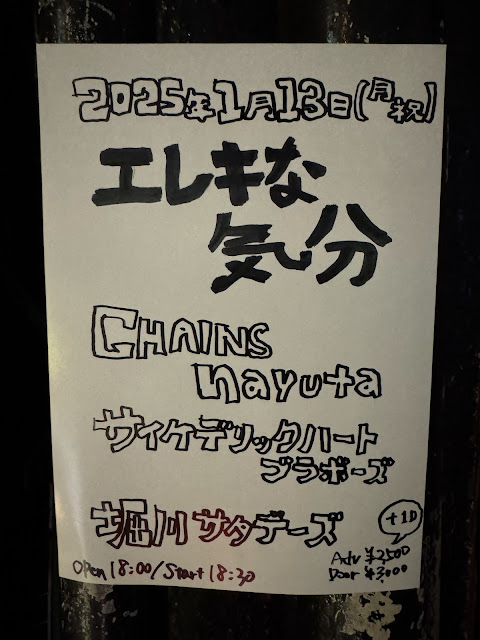 2025年1月13日(月祝)
エレキな
気分
CHAINS
nayuta
サイケデリックハート
ブラボーズ
堀川サタデーズ
+1D
Open 18:00/Start 18:30
Adv ¥2,500
Door ¥3,000